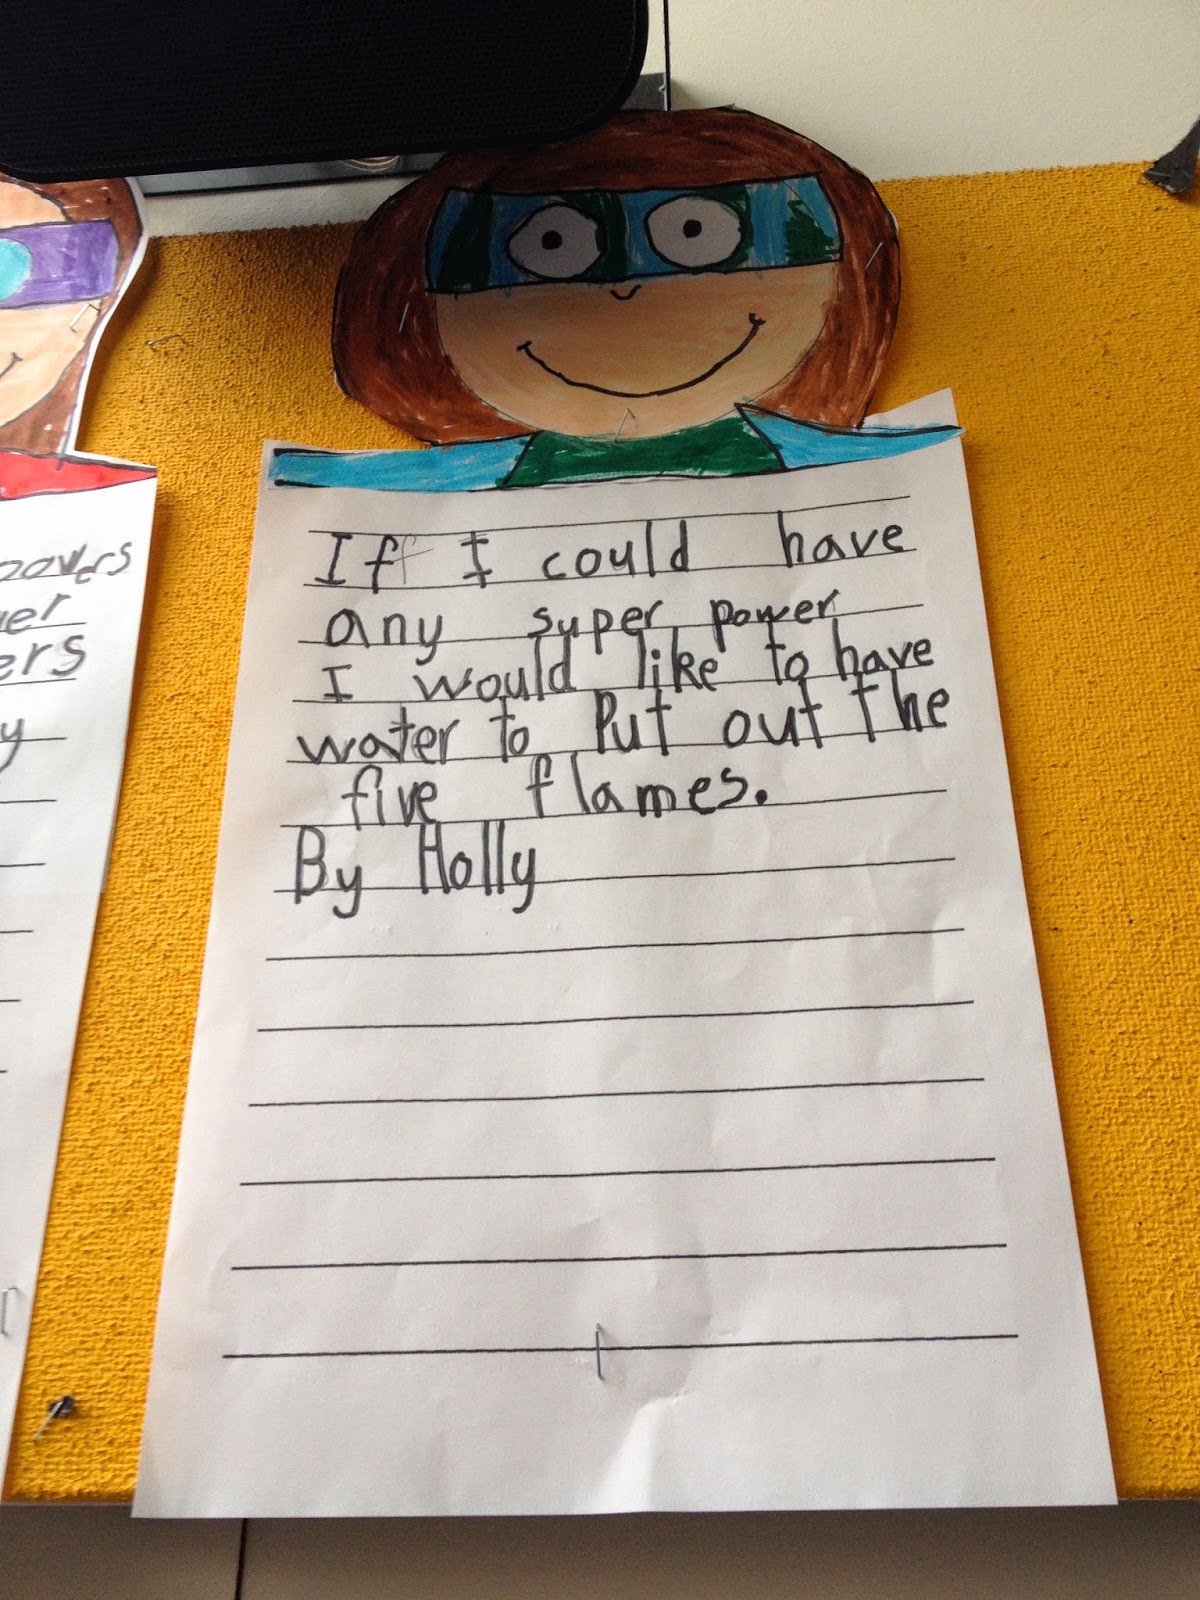 If I could have
any super power
I would like to have
water to Put out the
five flames.
By Holly
ers
y